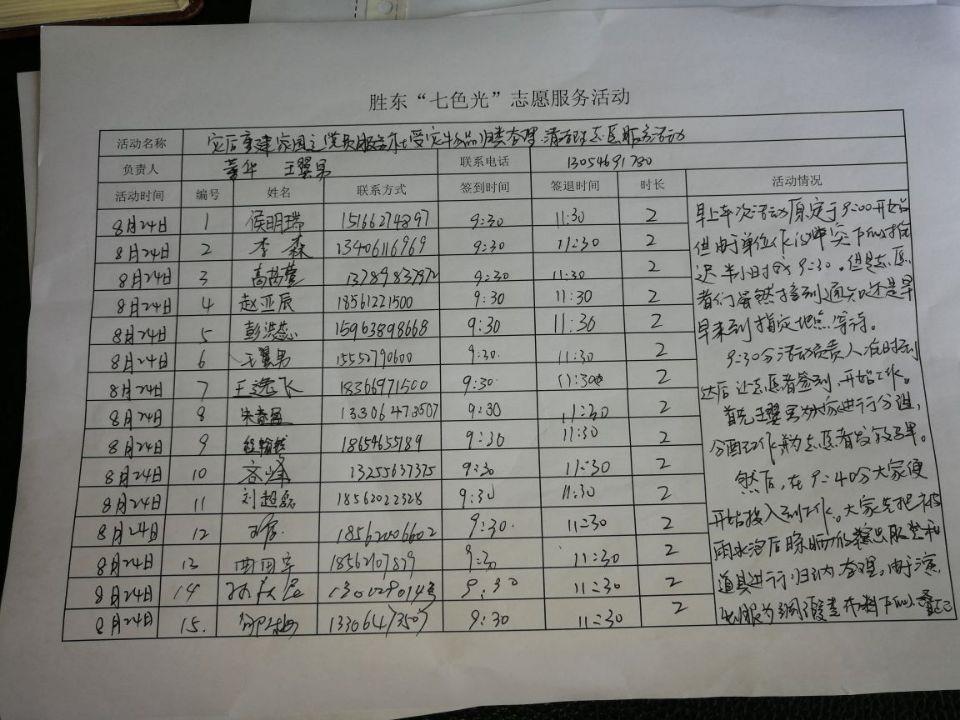 胜东“七色光”志愿服务活动
活动名称 灾后重建家园之党员服务 受灾物品归类整理 清扫 志愿服务活动
负责人 董华 王翼男 联系电话 13054691780
活动时间 编号 姓名 联系方式 签到时间 签退时间 时长 活动情况
8月24日 1 侯明瑞 15166274897 9:30 11:30 2
8月24日 2 李森 13406116969 9:30 11:30 2
8月24日 3 13789837972 9:30 11:30 2
8月24日 4 赵亚辰 18561221500 9:30 11:30 2
8月24日 5 彭洪 15963898668 9:30 11:30 2
8月24日 6 王翼男 15552790600 9:30 11:30 2
8月24日 7 王逸飞 18366971500 9:30 11:30 2
8月24日 8 13306473507 9:30 11:30 2
8月24日 9 18654655189 9:30 11:30 2
8月24日 10 13255637375 9:30 11:30 2
8月24日 11 刘超磊 18562022328 9:30 11:30 2
8月24日 12 18562006602 9:30 11:30 2
8月24日 13 18562107829 9:30 11:30 2
8月24日 14 9:30 11:30 2
8月24日 15. 13306473507 9:30 11:30 2
早上本次活动原定于9:00开始
但由于单位工作冲突 所以推
迟半小时 9:30。但是志愿
者们虽然接到通知还是早
早来到指定地点等待。
9:30分活动负责人准时到
达后让志愿者签到,开始工作。
首先王翼男为大家进行分组,
分配工作并为志愿者发放
然后,在9:40分大家便
开始投入到工作。大家先把被
雨水泡后晾晒的演出服整和
道具进行归纳整理。由于演
出服为绸缎 布料所以